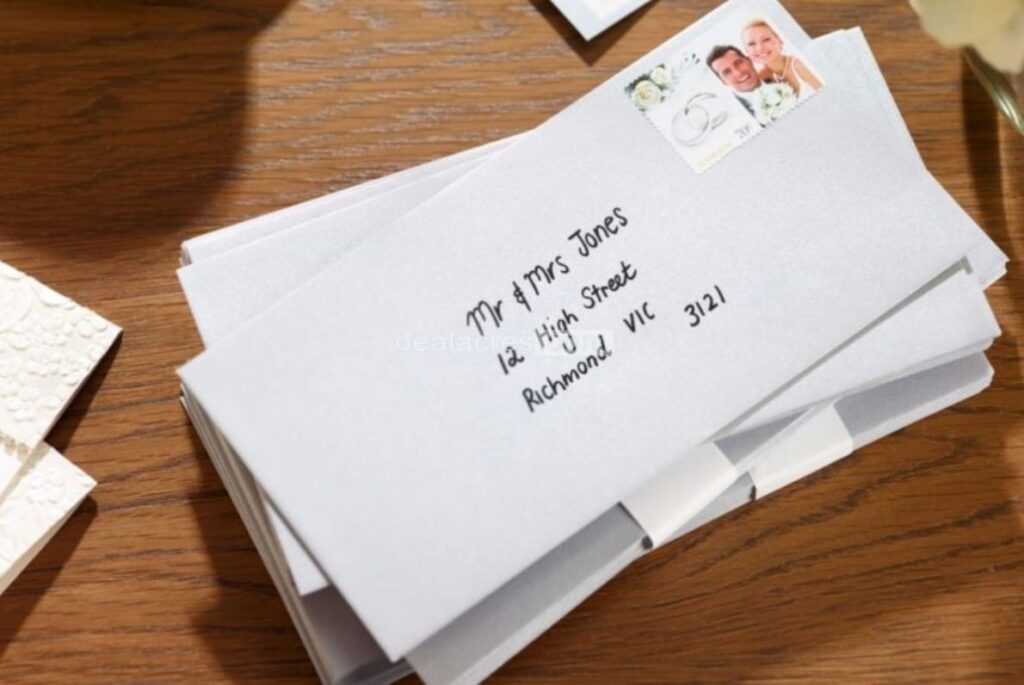 Mr & Mrs Jones
12 High Street
Richmond VIC 3121
70c